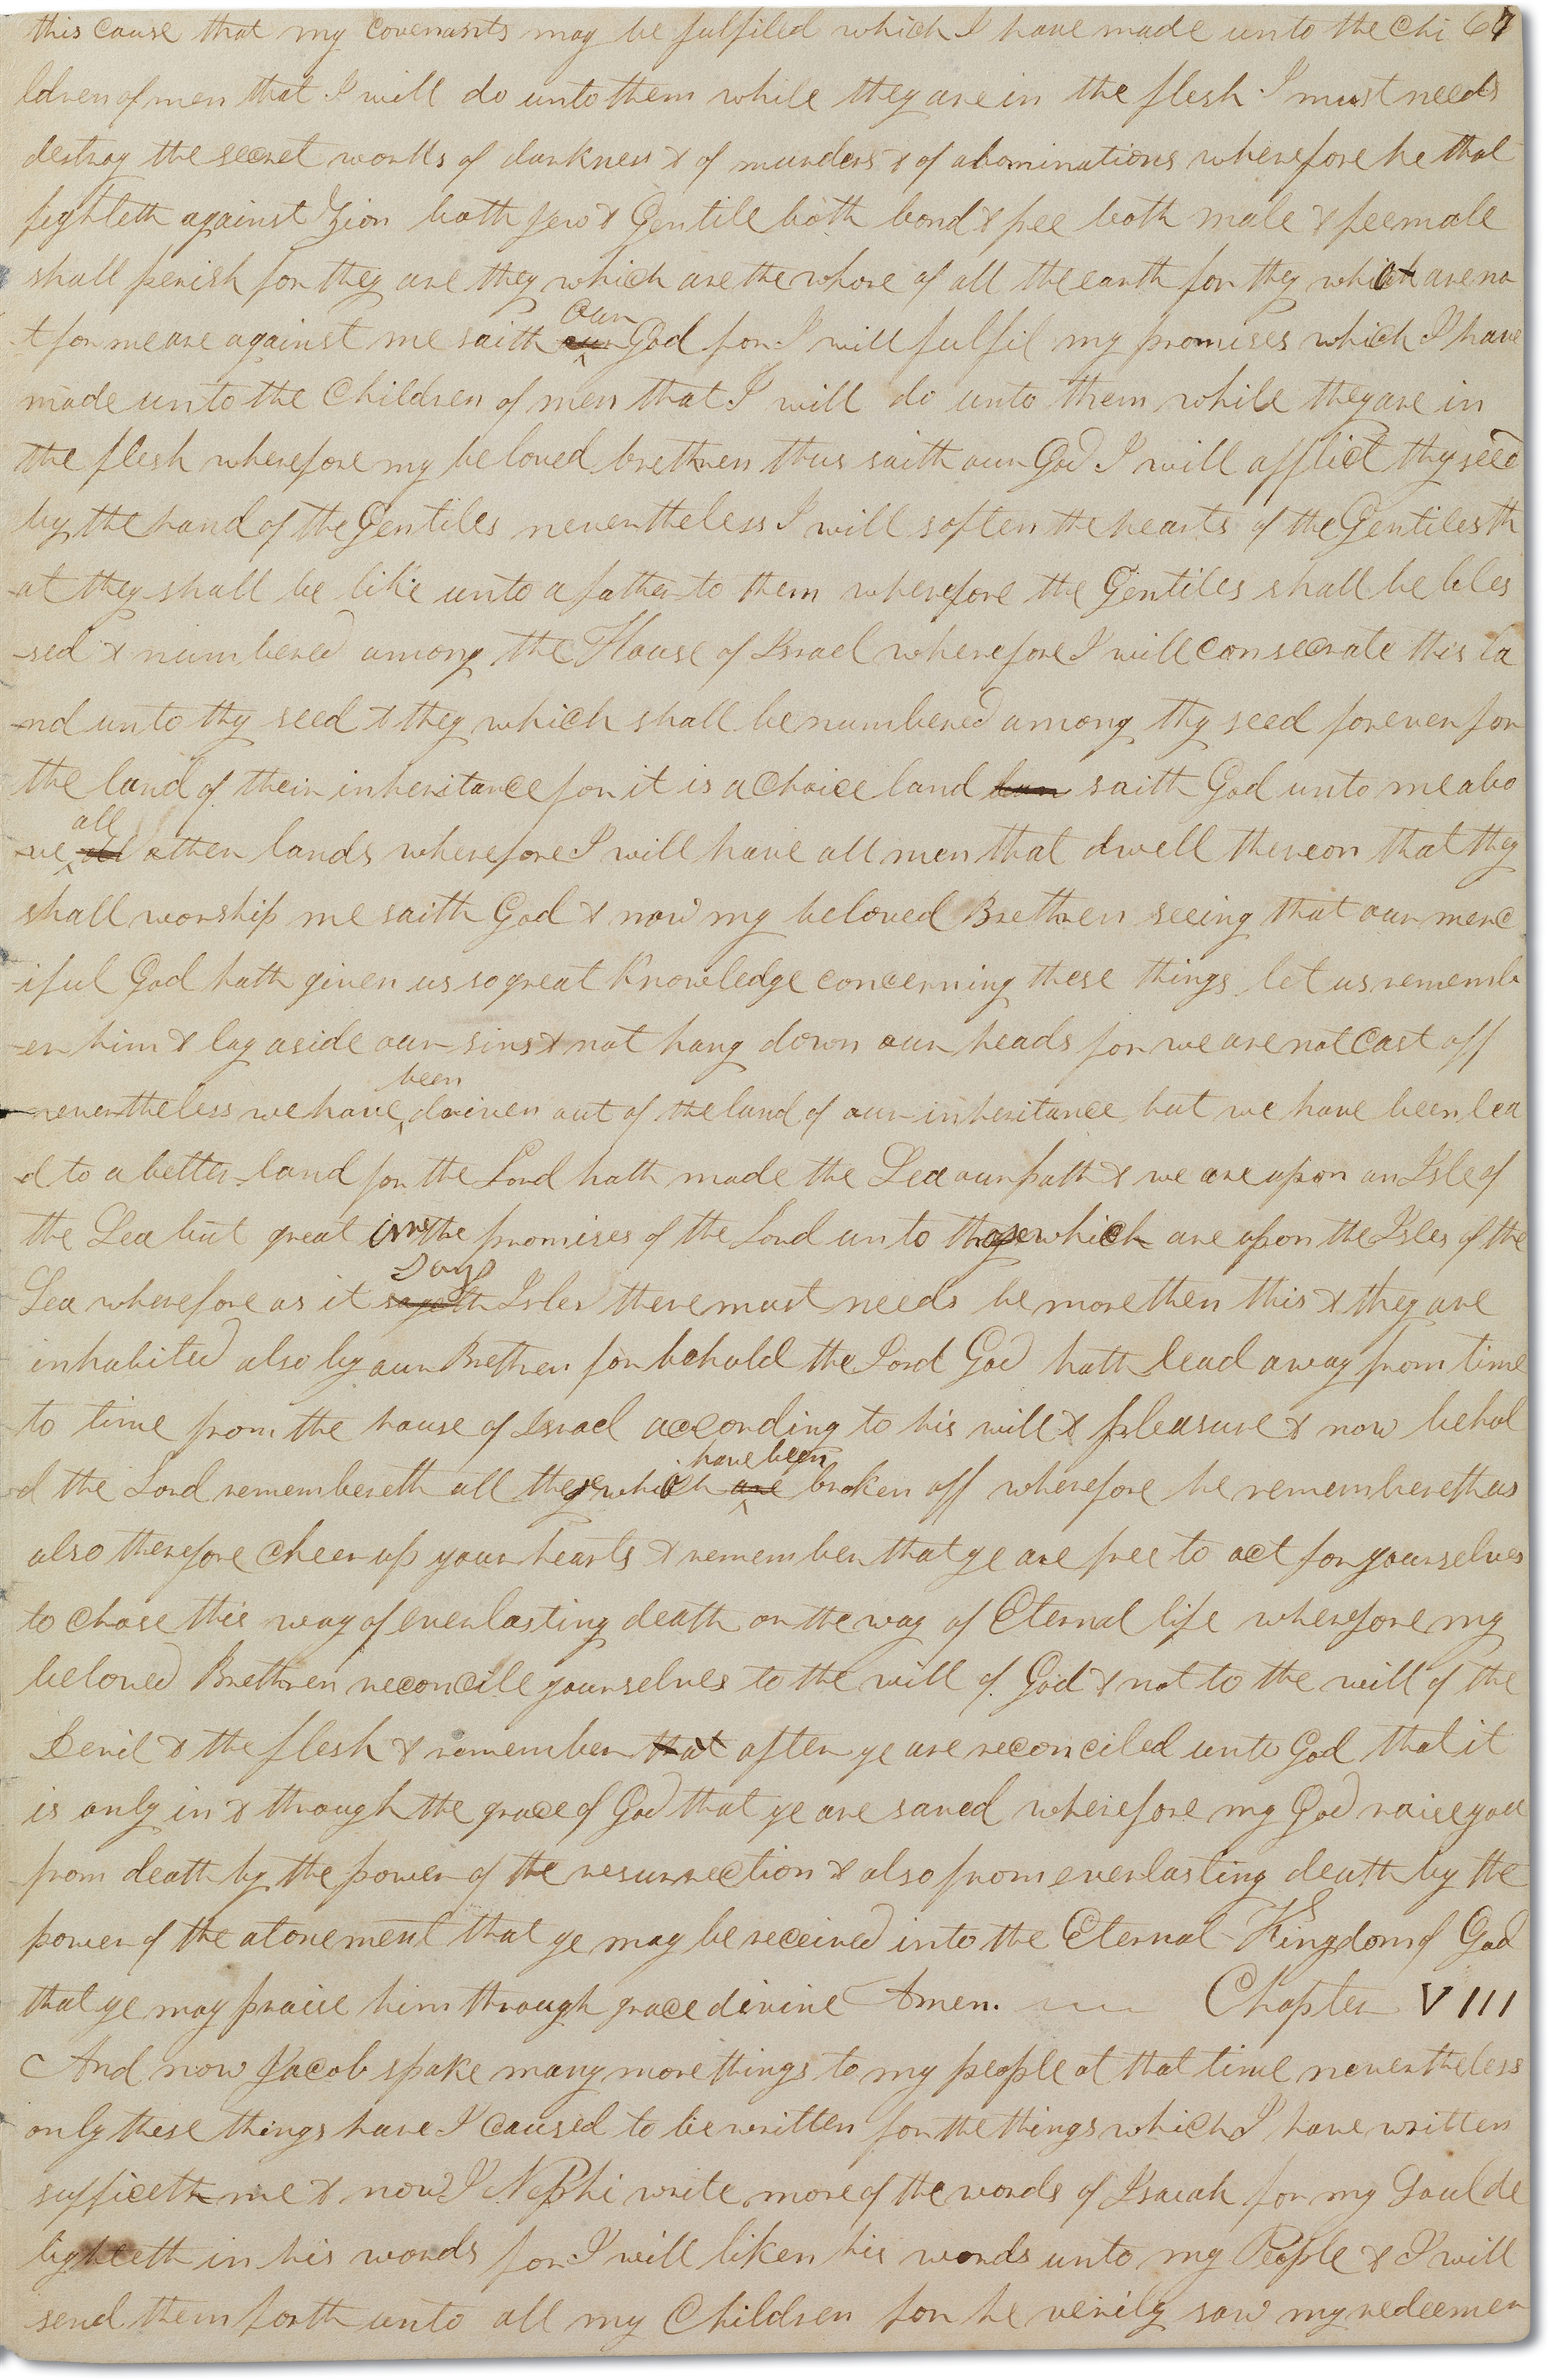 this cause that my covenants may be fulfiled which I have made unto the Chi 67
ldren of men that I will do unto them while they are in the flesh I must needs
destroy the secret works of darkness & of murders & of abominations wherefore he that
fighteth against Zion both Jew & Gentile both bond & free both male & feemale
shall perish for they are they which are the whore of all the earth for they which are no
-t for me are against me saith our God for I will fulfil my promises which I have
made unto the Children of men that I will do unto them while they are in
the flesh wherefore my beloved brethren thus saith our God I will afflict thy seed
by the hand of the Gentiles nevertheless I will soften the hearts of the Gentiles th
-at they shall be like unto a father to them wherefore the Gentiles shall be bles
-sed & numbered among the House of Israel wherefore I will consecrate this la
-nd unto thy seed & they which shall be numbered among thy seed forever for
the land of their inheritance for it is a Choice land saith God unto me abo
-ve all other lands wherefore I will have all men that dwell thereon that they
shall worship me saith God & now my beloved Brethren seeing that our merc
-iful God hath given us so great Knowledge concerning these things let us rememb
-er him & lay aside our sins & not hang down our heads for we are not Cast off
nevertheless we have been driven out of the land of our inheritance but we have been lea
-d to a better land for the Lord hath made the Sea our path & we are upon an Isle of
the Sea but great are the promises of the Lord unto those which are upon the Isles of the
Sea wherefore as it says Isles there must needs be more then this & they are
inhabited also by our Brethren for behold the Lord God hath lead away from time
to time from the house of Israel according to his will & pleasure & now behol
-d the Lord remembereth all these which have been broken off wherefore he remembereth us
also therefore Cheer up your hearts & remember that ye are free to act for yourselves
to Chose the way of everlasting death or the way of Eternal life wherefore my
beloved Brethren reconcile yourselves to the will of God & not to the will of the
Devil & the flesh & remember that after ye are reconciled unto God that it
is only in & through the grace of God that ye are saved wherefore my God raise you
from death by the power of the resurrection & also from everlasting death by the
power of the atonement that ye may be received into the Eternal Kingdom of God
that ye may praise him through grace divine Amen. Chapter VIII
And now Jacob spake many more things to my people at that time nevertheless
only these things have I Caused to be written for the things which I have written
sufficeth me & now I Nephi write more of the words of Isaiah for my Soul de
lighteth in his words for I will liken his words unto my People & I will
send them forth unto all my Children for he verily saw my redeemer